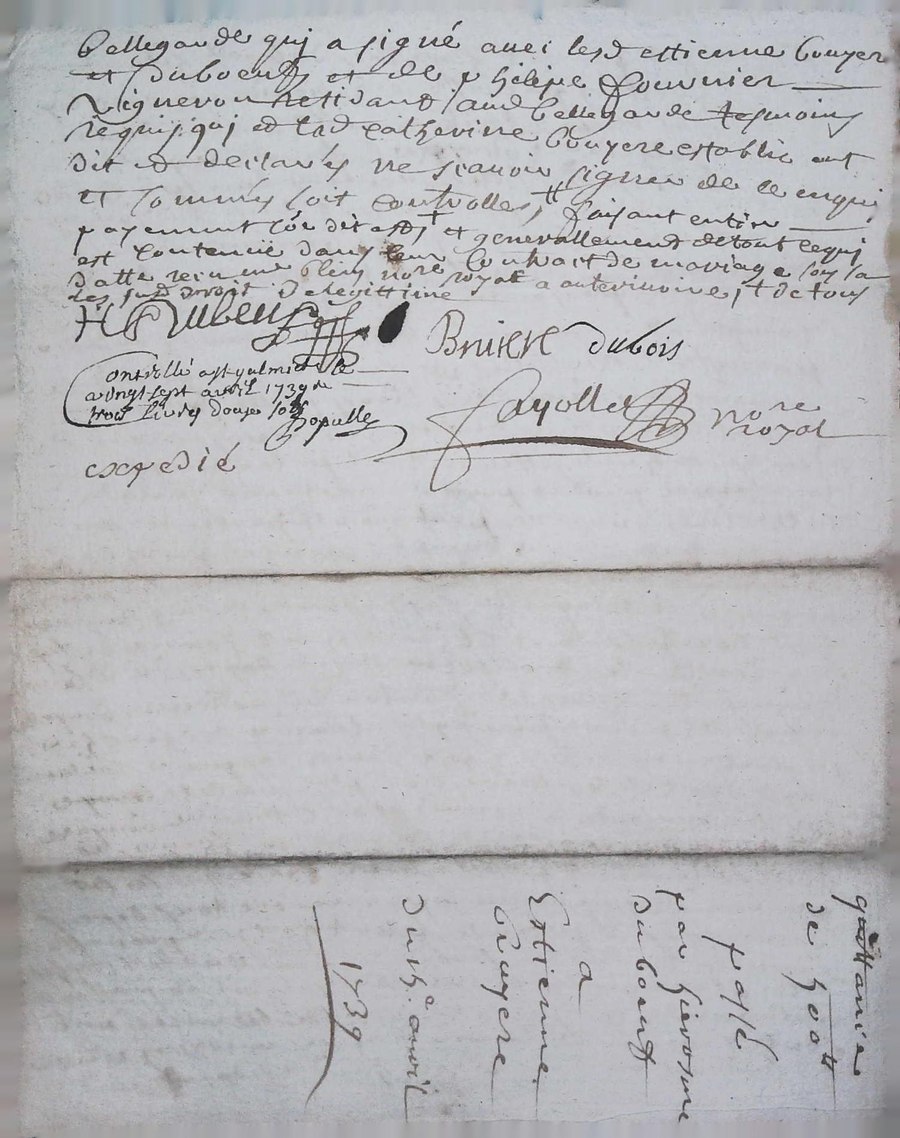 bellegarde qui a signé avec lesd ettienne bouyer
et duboeuf et de phelipe fournier
vigneron residant aud bellegarde tesmoins
requis qui et lad catherine bouyere establie ont
dit et declarés ne scavoir signer de ce enquis
et sommés soit controllés, # faisant entier
payement et generallement de tout ce qui
est contenu dans leur contract de mariage
datte receu me nore royal
les susd droit de legittime
H Dubeuf
Briere dubois
Controllé a st galmier le
vingt sept avril 1739 Re
trois livres douze sols
Populle
Fayolle nore
royal
expedié
quittance
de 500 #
passé
par hierosme
duboeuf
a
Estienne
bruyere
du avril
1739